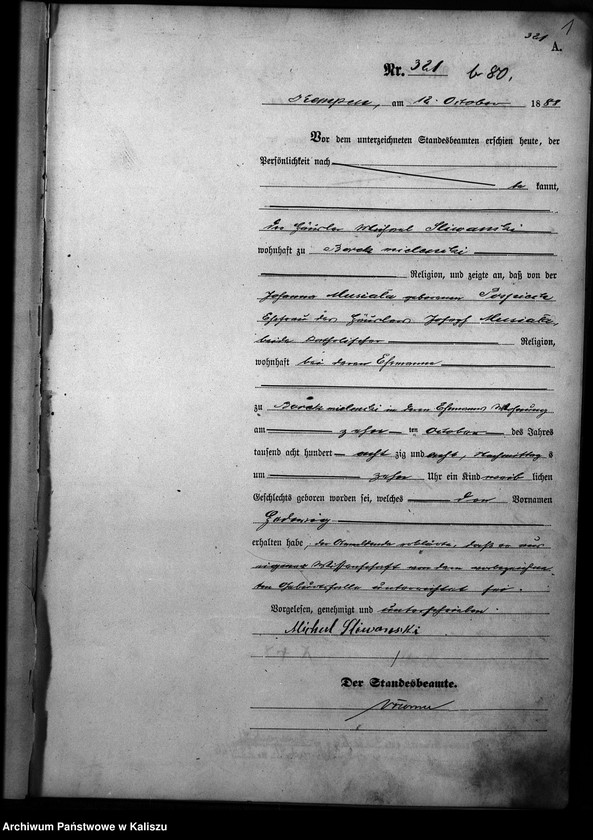 1
321
A.
Nr. 321 b 80.
Kempen, am 12. October 1888
Vor dem unterzeichneten Standesbeamten erschien heute, der
Persönlichkeit nach
be kannt,
der Häusler Michael Sliwanski
wohnhaft zu Borek mielenski
Religion, und zeigte an, daß von der
Johanna Musiala geborenen
Ehefrau des Häuslers Joseph Musiala,
beide katholischer Religion,
wohnhaft bei deren Ehemanne
zu Borek mielenski in deren Ehemannes Wohnung
am zehn ten October des Jahres
tausend acht hundert acht zig und acht, Nachmittags
um zehn Uhr ein Kind weib lichen
Geschlechts geboren worden sei, welches den Vornamen
Hedwig
erhalten habe, der Anmeldende erklärte, daß er aus
eigener Wissenschaft von dem vorbezeichne-
ten Geburtsfalle unterrichtet sei.
Vorgelesen, genehmigt und unterschrieben
Michael Sliwanski
Der Standesbeamte.
Archiwum Państwowe w Kaliszu